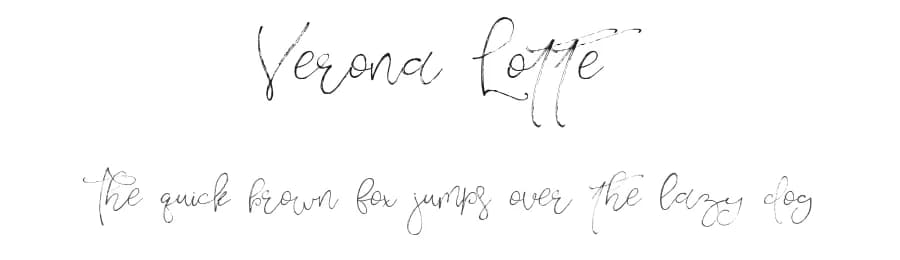 Verona Lotte
the quick brown fox jumps over the lazy dog